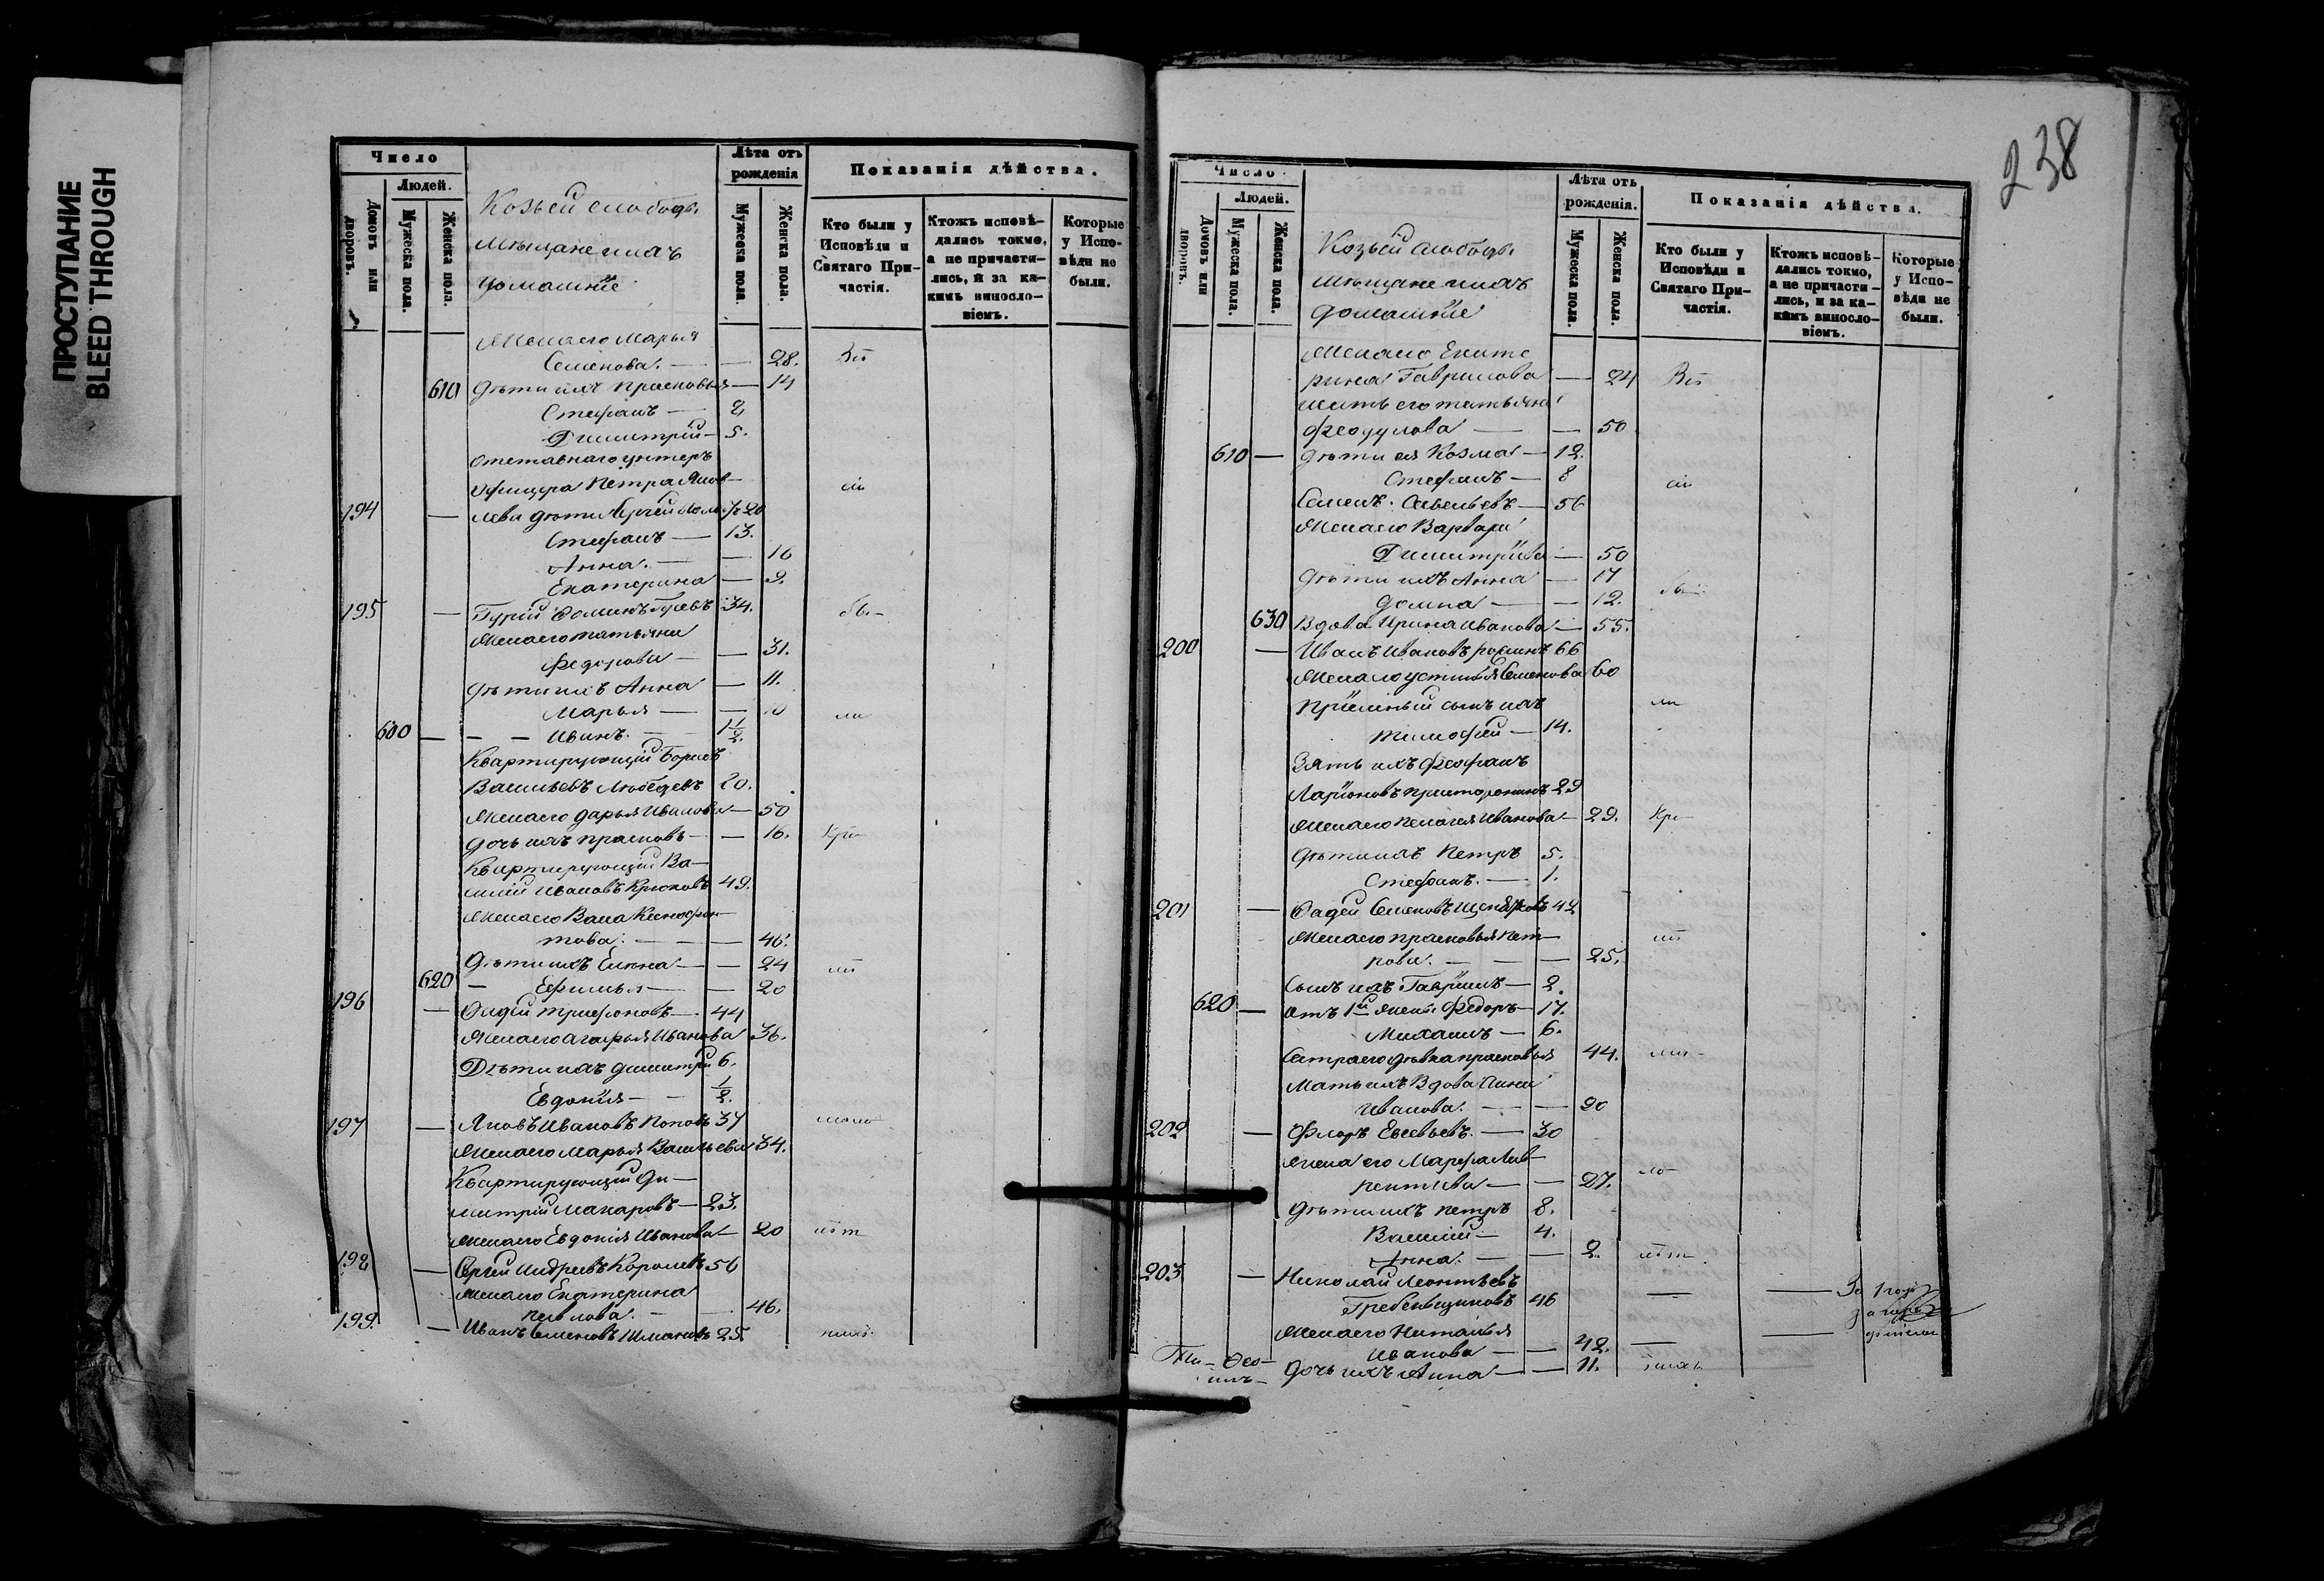 ПРОСТУПАНИЕ
BLEED THROUGH
238
Число
Людей.
Домовъ или дворовъ.
Мужеска пола.
Женска пола.
Козьей слободы
мѣщане и ихъ
домашніе
Лѣта отъ рожденія
Мужеска пола.
Женска пола.
Показанія дѣйства.
Кто были у Исповѣди и Святаго Причастія.
Ктожъ исповѣдались токмо, а не причастились, и за какимъ винословіемъ.
Которые у Исповѣди не были.
Жена его Марья
Семенова. — — 28.
610 Дѣти ихъ Прасковья — 14
Стефанъ — 8
Димитрій — 5.
Отставнаго унтеръ
офицера Петра
194 — дѣти Сергѣй 20
Стефанъ — 13.
Анна. — — 16
Екатерина — 9.
195 — Гурій 34. бы-
Жена его Татьяна
Федорова — — 31.
Дѣти ихъ Анна — 11.
Марья — — 10 ли
600 — — — Иванъ. — 1 1/2.
Квартирующій Борисъ
Васильевъ Лебедевъ 20.
Жена его Дарья Иванова — 50
Дочь ихъ Прасковь — — 16. при-
Квартирующій Ва-
силій Ивановъ Крюковъ 49.
Жена его Ксенофон-
това. — — — 46.
Дѣти ихъ Елена — — 24
620 — Ефимья — — 20
196 — Фадей Трифоновъ — 44
Жена его Агафья Иванова 36.
Дѣти ихъ Димитрій 6.
Евдокія — — 1/2.
197 — Яковъ Ивановъ Поповъ 37
Жена его Марья Васильева 34.
Квартирующій Ди-
митрій Макаровъ — 23.
Жена его Евдокія Иванова — 20
198 — Сергѣй Андреевъ Королевъ 56
Жена его Екатерина
Павлова. — — 46.
199. — Иванъ Семеновъ 25.
Число
Людей.
Домовъ или дворовъ.
Мужеска пола.
Женска пола.
Козьей слободы
мѣщане и ихъ
домашніе
Лѣта отъ рожденія.
Мужеска пола.
Женска пола.
Показанія дѣйства.
Кто были у Исповѣди и Святаго Причастія.
Ктожъ исповѣдались токмо, а не причастились, и за какимъ винословіемъ.
Которые у Исповѣди не были.
Жена его Екате
рина Гаврилова — 24
Мать его Татьяна
Феодулова — — 50
610 — Дѣти ея Козма — 12.
Стефанъ — 8
Семенъ Савельевъ — 56
Жена его Варвара
Димитріева — 50
Дѣти ихъ Анна — 17
Домна — — 12. бы-
630 Вдова Ирина Иванова — 55.
200 — Иванъ Ивановъ 66
Жена его Устинья Семенова 60
Пріемный сынъ ихъ ли
Тимофей — 14.
Зять ихъ Феофанъ
Ларіоновъ 29
Жена его Пелагея Иванова — 29. при-
Дѣти ихъ Петръ 5.
Стефанъ. — 1.
201 — Фадей Семеновъ 42
Жена его Прасковья Пет-
рова. — — — 25.
Сынъ ихъ Гавріилъ — 2.
620 — отъ 1й жены Федоръ — 17.
Михаилъ — 6.
Сестра его дѣвка Прасковья 44.
Мать ихъ вдова Анна
Иванова. — — 90
202 — Флоръ Евсевьевъ. — 30
Жена его Марфа Лав-
рентьева — — 27.
Дѣти ихъ Петръ 8.
Василій — 4.
Анна. — — 2.
203 — Николай Леонтьевъ
Гребенщиковъ 46 — — За 1 годъ
Жена его Наталья
Иванова — — 42. — —
Дочь ихъ Анна — — 11.